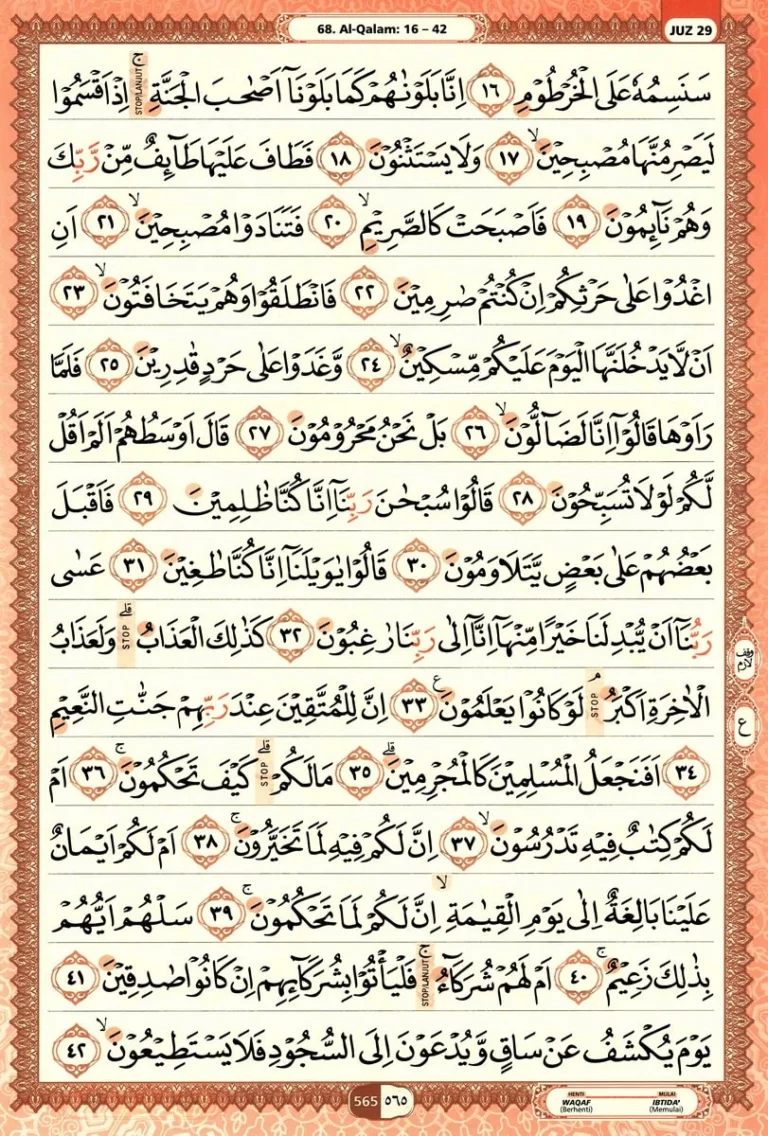 68. Al-Qalam: 16 – 42
JUZ 29
سَنَسِمُهٗ عَلَى الْخُرْطُوْمِ ١٦ اِنَّا بَلَوْنٰهُمْ كَمَا بَلَوْنَآ اَصْحٰبَ الْجَنَّةِۚ STOP/LANJUT اِذْ اَقْسَمُوْا
لَيَصْرِمُنَّهَا مُصْبِحِيْنَۙ ١٧ وَلَا يَسْتَثْنُوْنَ ١٨ فَطَافَ عَلَيْهَا طَاۤىِٕفٌ مِّنْ رَّبِّكَ
وَهُمْ نَاۤىِٕمُوْنَ ١٩ فَاَصْبَحَتْ كَالصَّرِيْمِۙ ٢٠ فَتَنَادَوْا مُصْبِحِيْنَۙ ٢١ اَنِ
اغْدُوْا عَلٰى حَرْثِكُمْ اِنْ كُنْتُمْ صٰرِمِيْنَ ٢٢ فَانْطَلَقُوْا وَهُمْ يَتَخَافَتُوْنَۙ ٢٣
اَنْ لَّا يَدْخُلَنَّهَا الْيَوْمَ عَلَيْكُمْ مِّسْكِيْنٌۙ ٢٤ وَّغَدَوْا عَلٰى حَرْدٍ قٰدِرِيْنَ ٢٥ فَلَمَّا
رَاَوْهَا قَالُوْٓا اِنَّا لَضَاۤلُّوْنَۙ ٢٦ بَلْ نَحْنُ مَحْرُوْمُوْنَ ٢٧ قَالَ اَوْسَطُهُمْ اَلَمْ اَقُلْ
لَّكُمْ لَوْلَا تُسَبِّحُوْنَ ٢٨ قَالُوْا سُبْحٰنَ رَبِّنَآ اِنَّا كُنَّا ظٰلِمِيْنَ ٢٩ فَاَقْبَلَ
بَعْضُهُمْ عَلٰى بَعْضٍ يَّتَلَاوَمُوْنَ ٣٠ قَالُوْا يٰوَيْلَنَآ اِنَّا كُنَّا طٰغِيْنَ ٣١ عَسٰى
رَبُّنَآ اَنْ يُّبْدِلَنَا خَيْرًا مِّنْهَآ اِنَّآ اِلٰى رَبِّنَا رٰغِبُوْنَ ٣٢ كَذٰلِكَ الْعَذَابُۗ STOP وَلَعَذَابُ
الْاٰخِرَةِ اَكْبَرُۘ STOP لَوْ كَانُوْا يَعْلَمُوْنَ ࣖ ٣٣ اِنَّ لِلْمُتَّقِيْنَ عِنْدَ رَبِّهِمْ جَنّٰتِ النَّعِيْمِ
٣٤ اَفَنَجْعَلُ الْمُسْلِمِيْنَ كَالْمُجْرِمِيْنَۗ ٣٥ مَا لَكُمْۗ STOP كَيْفَ تَحْكُمُوْنَۚ ٣٦ اَمْ
لَكُمْ كِتٰبٌ فِيْهِ تَدْرُسُوْنَۙ ٣٧ اِنَّ لَكُمْ فِيْهِ لَمَا تَخَيَّرُوْنَۚ ٣٨ اَمْ لَكُمْ اَيْمَانٌ
عَلَيْنَا بَالِغَةٌ اِلٰى يَوْمِ الْقِيٰمَةِۙ اِنَّ لَكُمْ لَمَا تَحْكُمُوْنَۚ ٣٩ سَلْهُمْ اَيُّهُمْ
بِذٰلِكَ زَعِيْمٌۚ ٤٠ اَمْ لَهُمْ شُرَكَاۤءُۚ STOP/LANJUT فَلْيَأْتُوْا بِشُرَكَاۤىِٕهِمْ اِنْ كَانُوْا صٰدِقِيْنَ ٤١
يَوْمَ يُكْشَفُ عَنْ سَاقٍ وَّيُدْعَوْنَ اِلَى السُّجُوْدِ فَلَا يَسْتَطِيْعُوْنَۙ ٤٢
وقف لازم
ع
565 ٥٦٥
HENTI WAQAF (Berhenti)
MULAI IBTIDA' (Memulai)